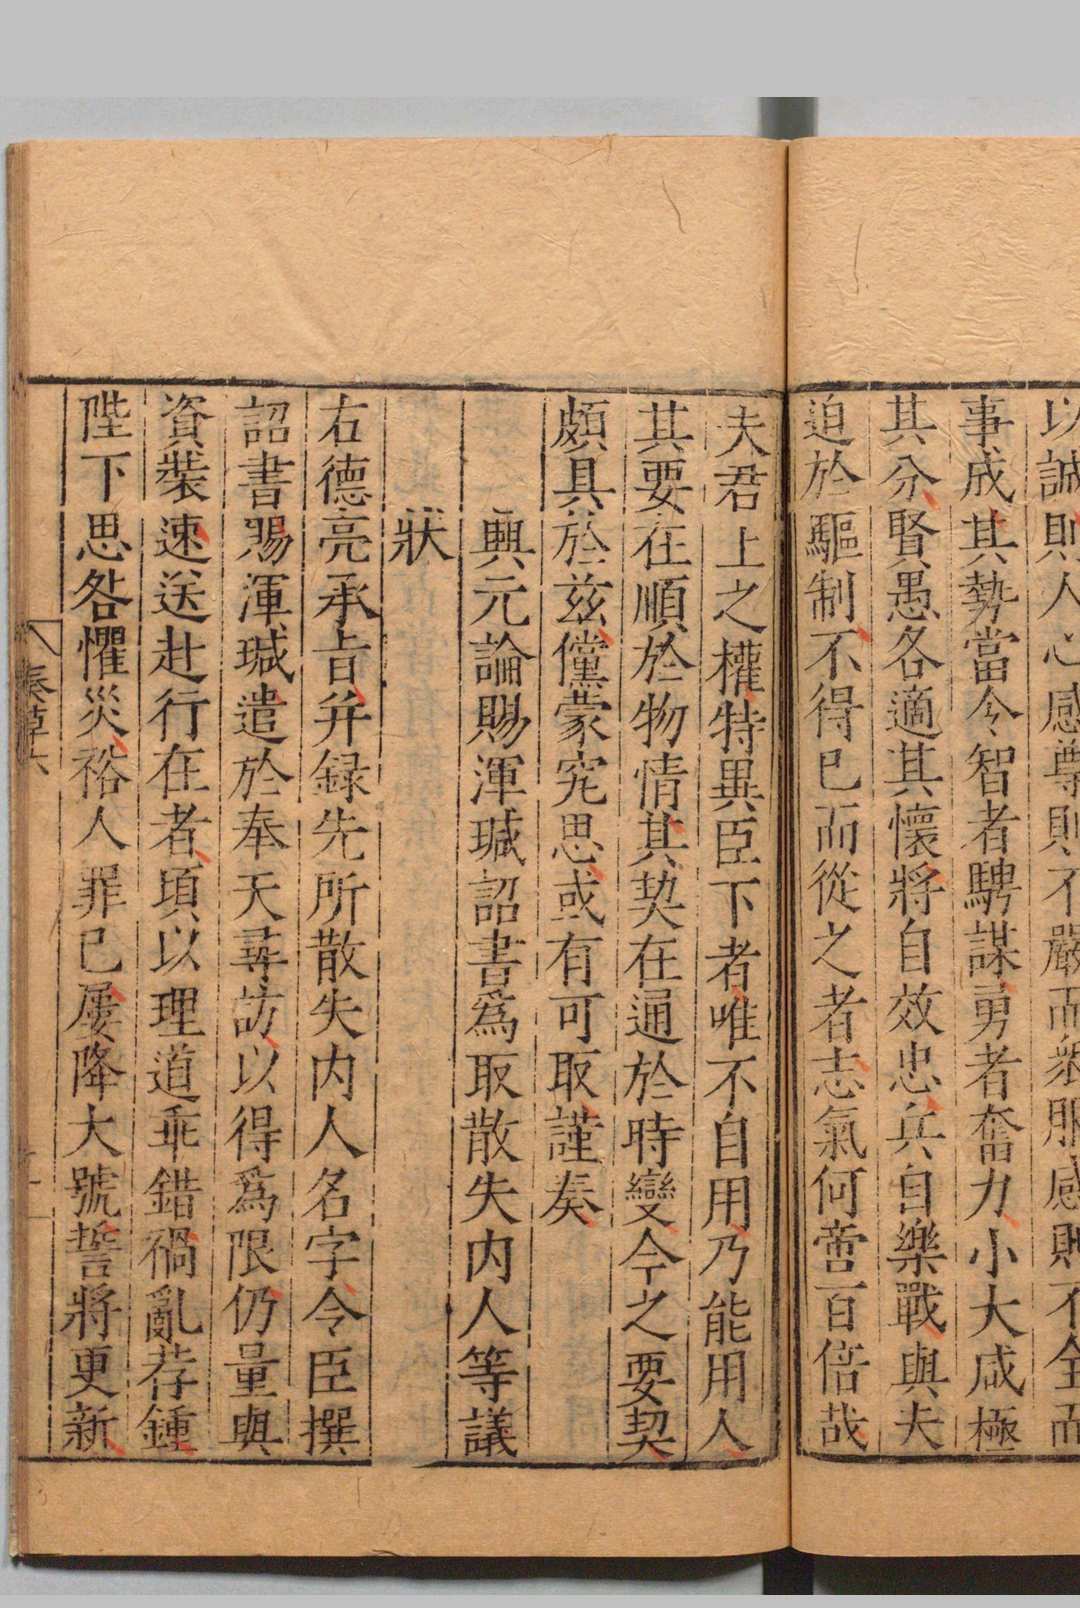 以誠則人心感尊則不嚴而衆服感則不令而
事成其勢當今智者騁謀勇者奮力小大咸極
其分賢愚各適其懷將自效忠兵自樂戰與夫
迫於驅制不得已而從之者志氣何啻百倍哉
夫君上之權特異臣下者唯不自用乃能用人
其要在順於物情其契在通於時變今之要契
頗具於茲儻蒙究思或有可取謹奏
興元論賜渾瑊詔書為取散失内人等議
狀
右德亮承旨并録先所散失内人名字令臣撰
詔書賜渾瑊遣於奉天尋訪以得為限仍量與
資裝速送赴行在者頃以理道乖錯禍亂荐鍾
陛下思咎懼災裕人罪已屢降大號誓將更新
奏草六